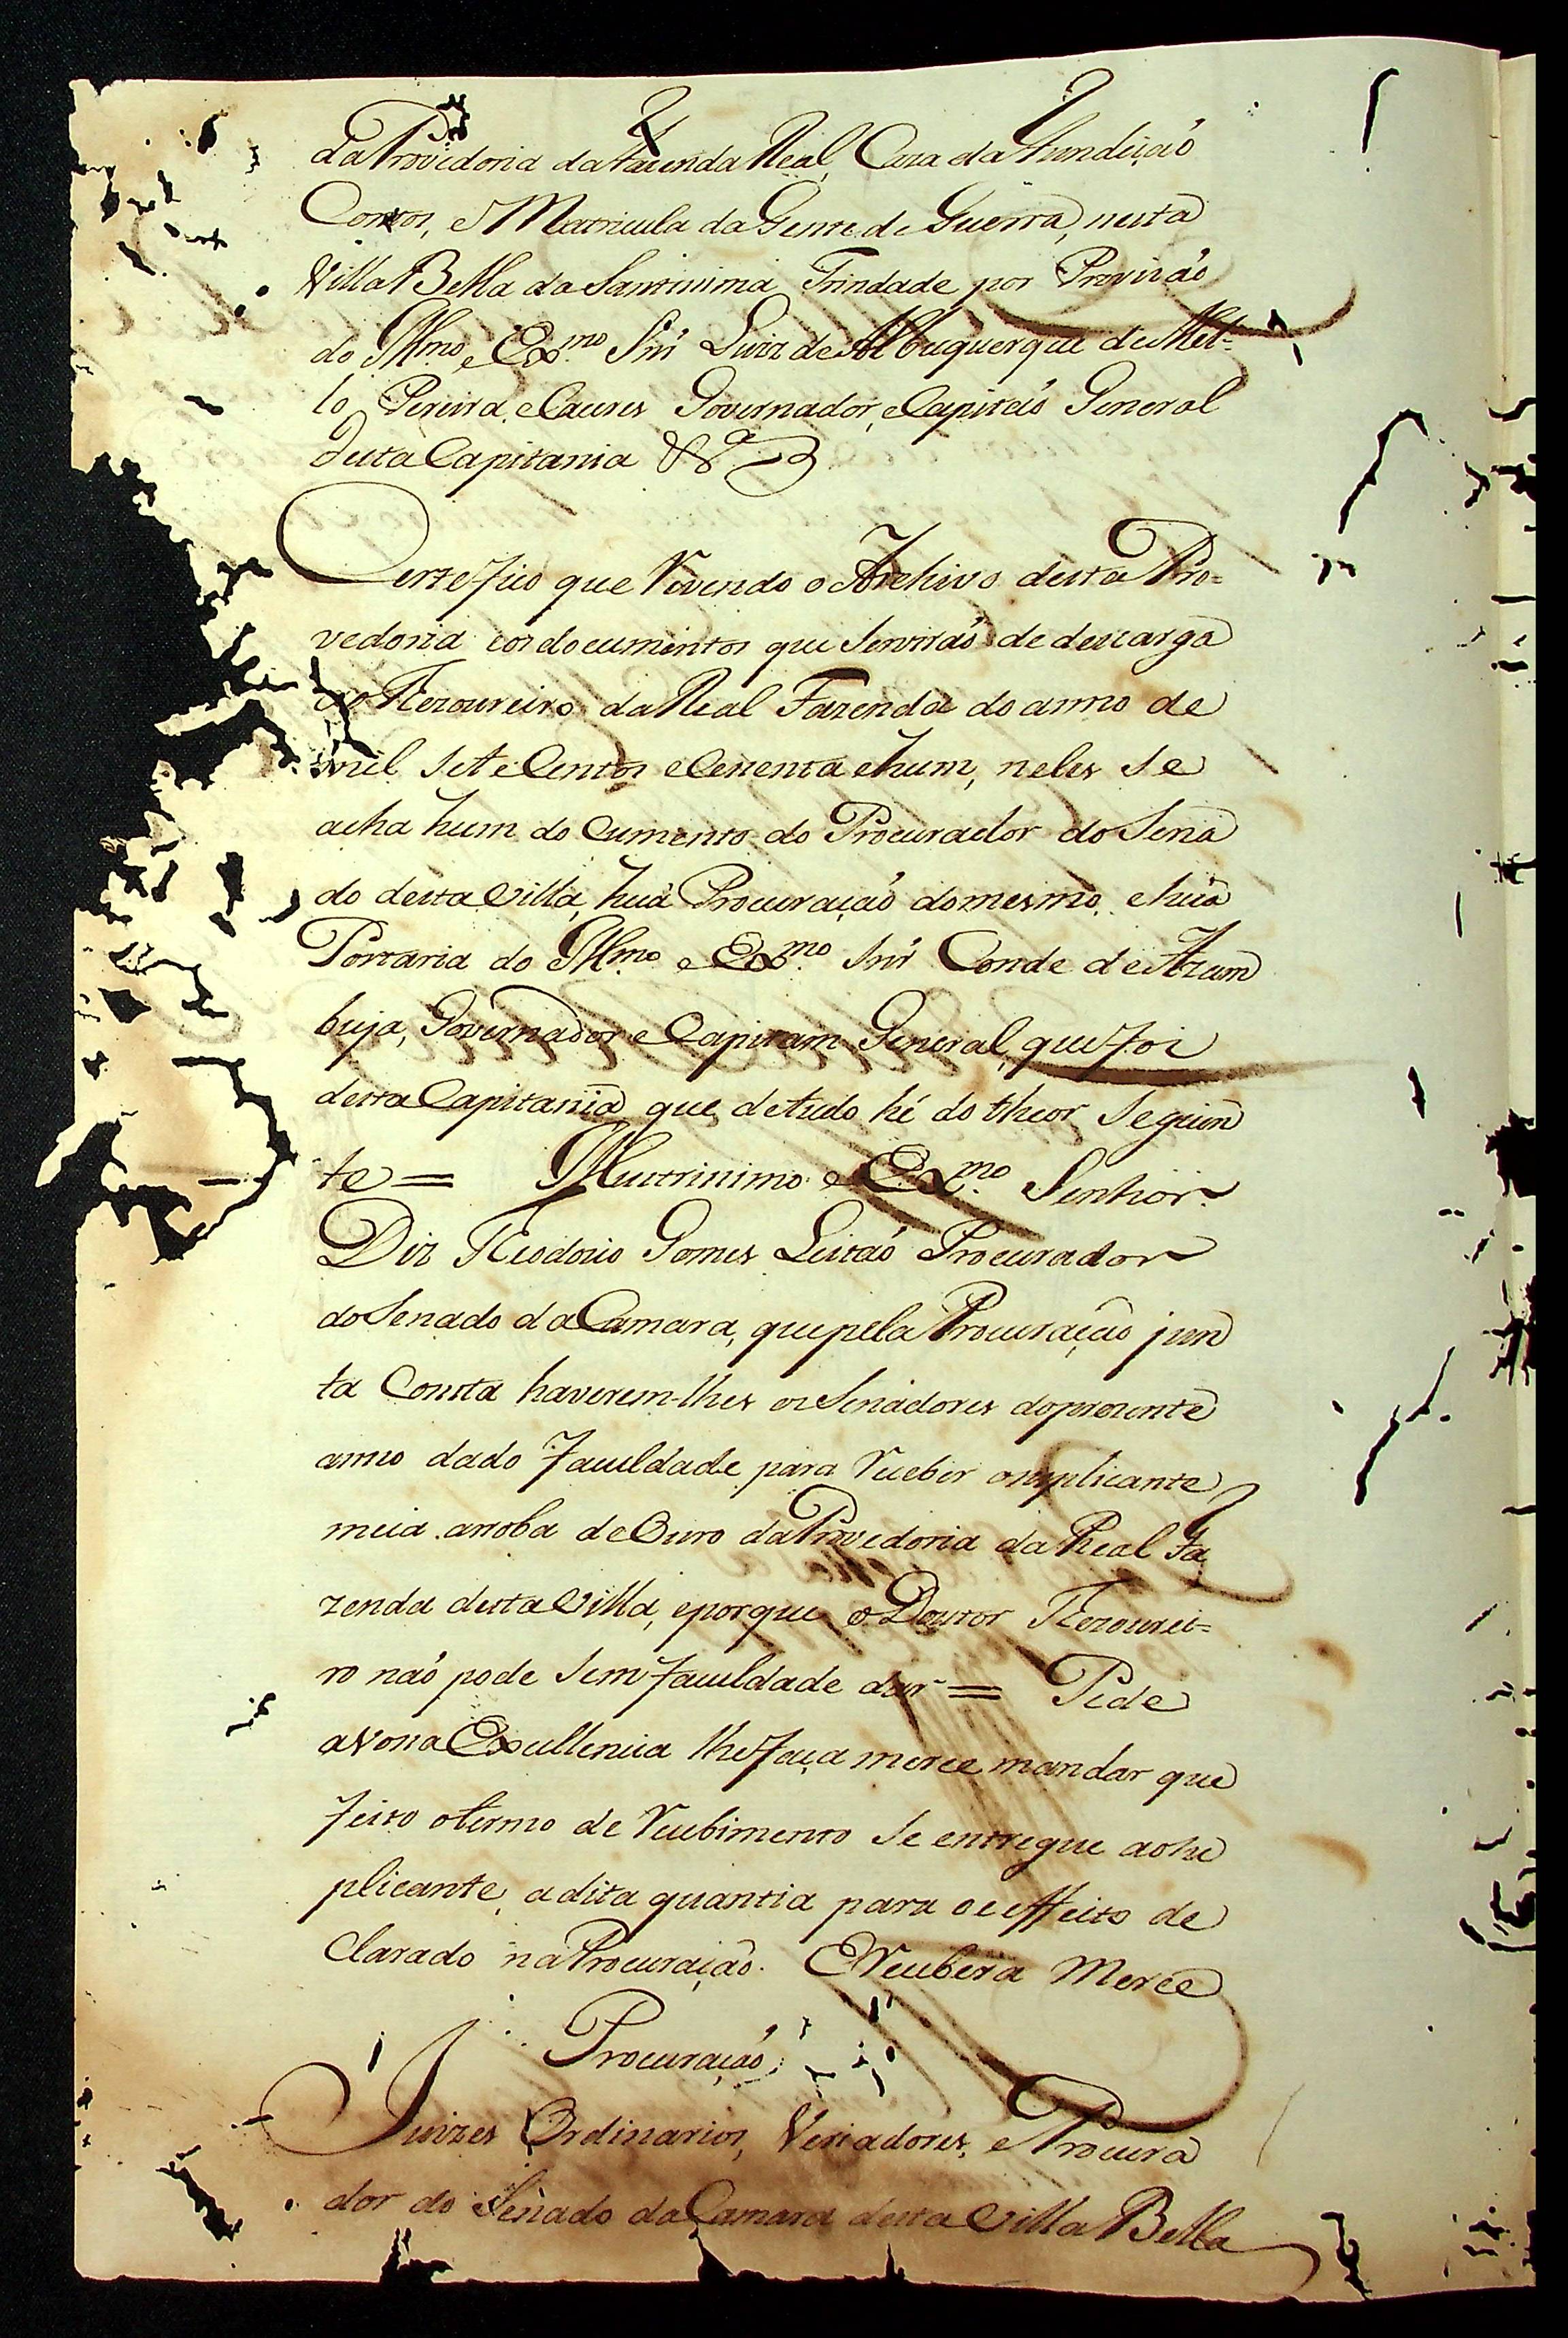 da Provedoria da Fazenda Real, Caza da Fundição
Contos, e Matricula da Gente de Guerra, nesta
Villa Bella da Santissima Trindade por Provizão
do Illmo e Exmo Snr Luiz de Albuquerque de Mel-
lo Pereira e Caceres Governador, e Capitão General
desta Capitania &ª
Certefico que Revendo o Archivo desta Pro=
vedoria e os documentos que Servirão de descarga
ao Thezoureiro da Real Fazenda do anno de
mil Sete Centos e Cessenta e hum, neles Se
acha hum do Cumento do Procurador do Sena
do desta Villa, huã Procuração do mesmo, e huã
Portaria do Illmo e Exmo Snr Conde de Azam
buja, Governador e Capitam General, que foi
desta Capitania que de tudo hé do theor Seguin
te = Illustrissimo e Exmo Senhor
Diz Theodozio Gomes Leitão Procurador
do Senado da Camara, que pela Procuração jun
ta Consta haverem-lhes os Senadores do prezente
anno dado faculdade para Receber o suplicante
meia arroba de Ouro da Provedoria da Real Fa
zenda desta Villa, e porque o Doutor Thezourei=
ro não pode Sem faculdade dar = Pede
a Vossa Excellencia lhe faça merce mandar que
feito o termo de Recebimento Se entregue ao Su
plicante, a dita quantia para o effeito de
Clarado na Procuração. E Recebera Merce
Procuração
Juizes Ordinarios, Veriadores, e Procura
dor do Senado da Camara desta Villa Bella